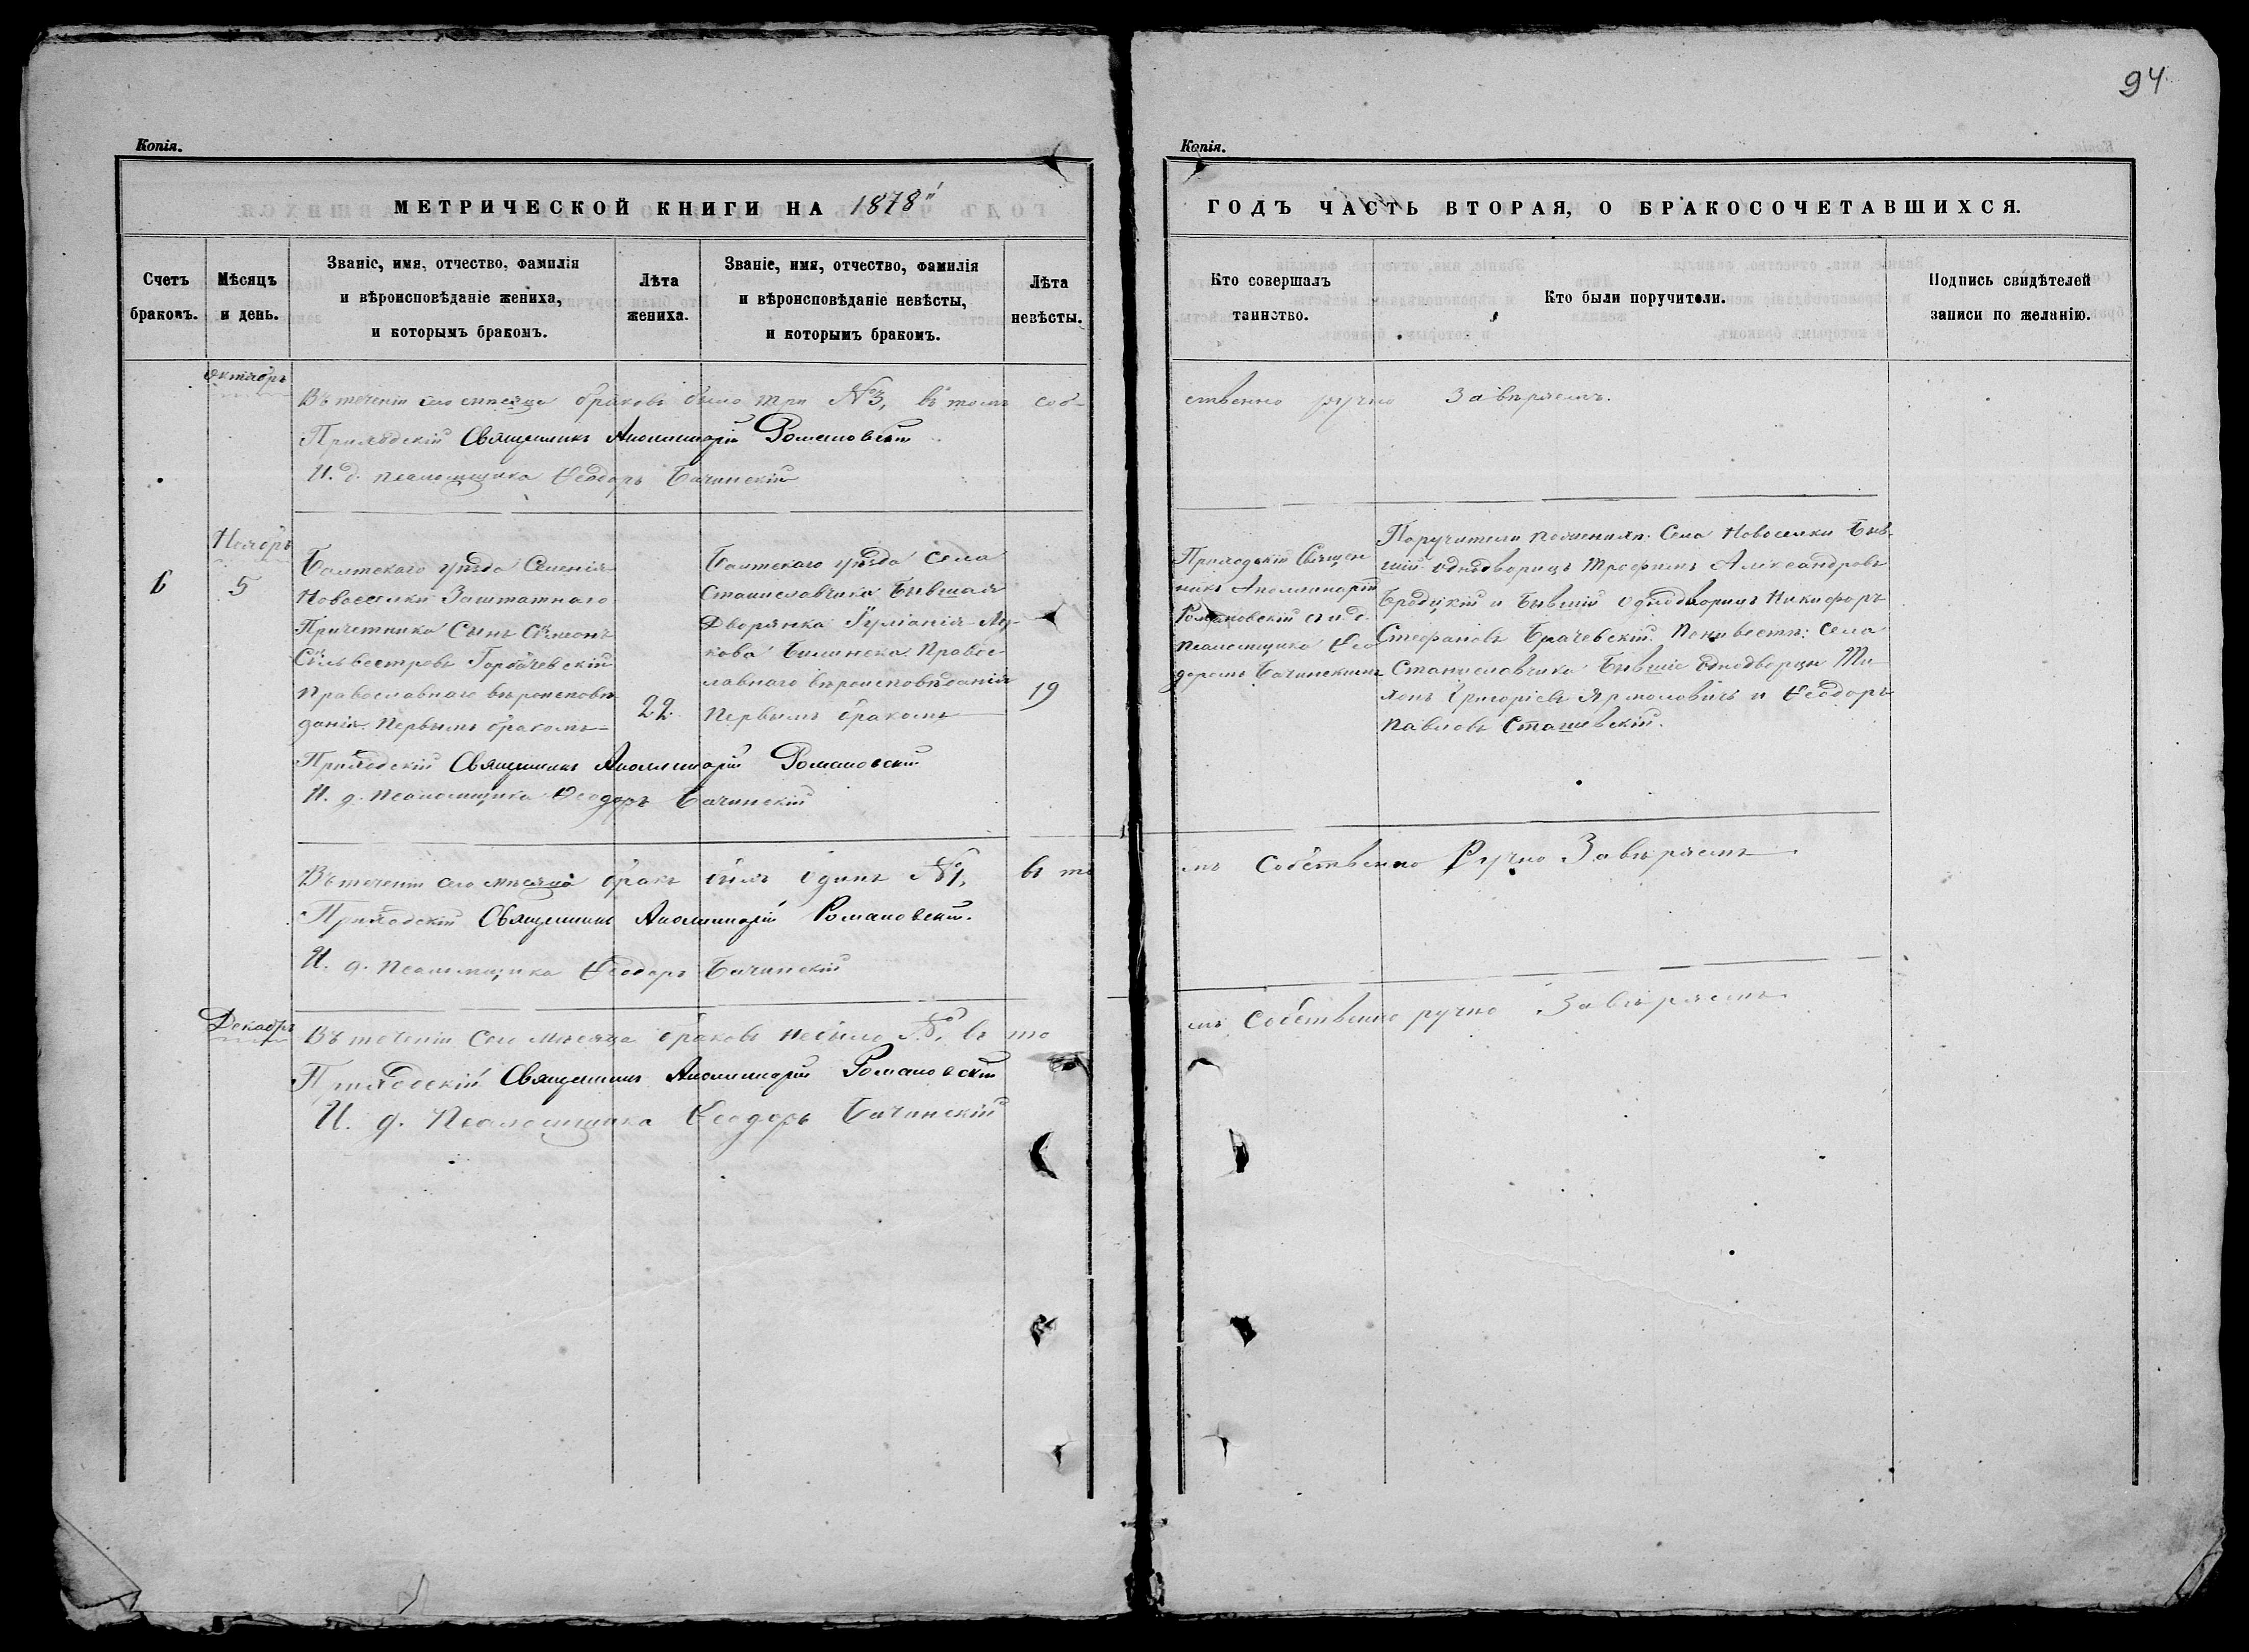 94
Копія.
МЕТРИЧЕСКОЙ КНИГИ НА 1878
Счетъ браковъ.
Мѣсяцъ и день.
Званіе, имя, отчество, фамилія
и вѣроисповѣданіе жениха,
и которымъ бракомъ.
Лѣта жениха.
Званіе, имя, отчество, фамилія
и вѣроисповѣданіе невѣсты,
и которымъ бракомъ.
Лѣта невѣсты.
Октябрь
Въ теченіи сего мѣсяца браковъ было три №3, въ томъ соб-
Приходскій Священникъ Аполлинарій Романовскій
И. д. псаломщика Ѳеодоръ Бачинскій
Ноябрь
6
5
Балтскаго уѣзда Селенія
Новоселки Заштатнаго
Причетника Сынъ Сѵмеонъ
Сѵльвестровъ Горбачевскій
Православнаго вѣроисповѣ
данія Первымъ бракомъ
22
Балтскаго уѣзда Села
Станиславчика Бывшая
Дворянка Іуліанія
Билинска Правос-
лавнаго вѣроисповѣданія
Первымъ бракомъ
19
Приходскій Священникъ Аполлинарій Романовскій
И. д. Псаломщика Ѳеодоръ Бачинскій
Въ теченіи сего мѣсяца бракъ былъ одинъ №1, въ то
Приходскій Священникъ Аполлинарій Романовскій.
И. д. псаломщика Ѳеодоръ Бачинскій
Декабрь
Въ теченіи сего мѣсяца браковъ небыло №, въ то
Приходскій Священникъ Аполлинарій Романовскій
И. д. Псаломщика Ѳеодоръ Бачинскій
Копія.
ГОДЪ ЧАСТЬ ВТОРАЯ, О БРАКОСОЧЕТАВШИХСЯ.
Кто совершалъ таинство.
Кто были поручители.
Подпись свидѣтелей
записи по желанію.
ственно ручно завѣряемъ.
Приходскій Священ
никъ Аполлинарій
Романовскій съ и. д.
псаломщика Ѳео
доромъ Бачинскимъ
Поручители по женихѣ: Села Новоселки Быв-
шій однодворецъ Трофимъ Александровъ
Бродцкій и Бывшій однодворецъ Никифоръ
Стефановъ Брачевскій. По невѣстѣ: Села
Станиславчика Бывшіе однодворцы Ти
хонъ Григоріевъ Ярмоловичъ и Ѳеодоръ
Павловъ Сташевскій.
мъ Собственно Ручно Завѣряемъ
мъ Собственно ручно Завѣряемъ